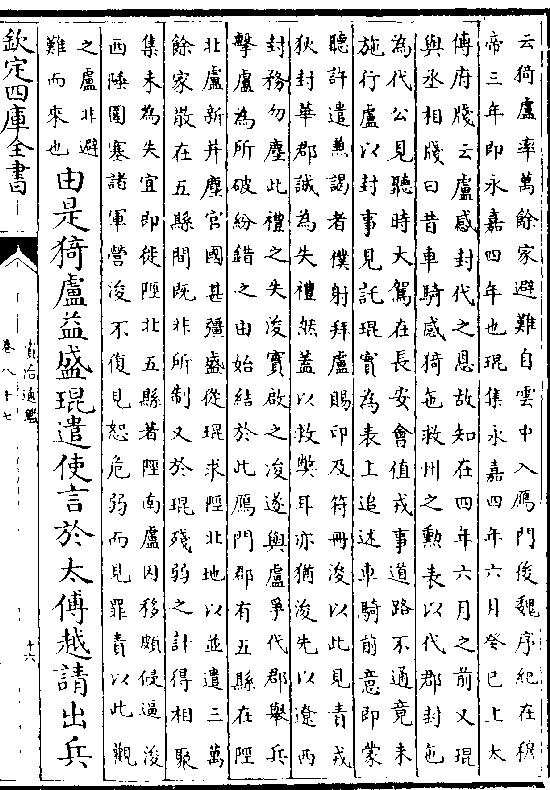 云猗盧率萬餘家避難自雲中入鴈門後魏序紀在穆
帝三年即永嘉四年也琨集永嘉四年六月癸巳上太
傅府牋云盧感封代之恩故知在四年六月之前又琨
與丞相牋曰昔車騎感猗㐌救州之勲表以代郡封㐌
為代公見聽時大駕在長安會值戎事道路不通竟未
施行盧以封事見託琨實為表上追述車騎前意即蒙
聽許遣兼謁者僕射拜盧賜印及符冊浚以此見責戎
狄封華郡誠為失禮然蓋以救弊耳亦猶浚先以遼西
封務勿塵此禮之失浚實啟之浚遂與盧爭代郡舉兵
擊盧為所破紛錯之由始結於此鴈門郡有五縣在陘
北盧新并塵官國甚彊盛從琨求陘北地以並遣三萬
餘家散在五縣間既非所制又於琨殘弱之計得相聚
集未為失宜即徙陘北五縣著陘南盧因移頗侵逼浚
西陲圉塞諸軍營浚不復見恕危弱而見罪責以此觀
之盧非避
難而來也
由是猗盧益盛琨遣使言於太傅越請出兵
欽定四庫全書
資治通鑑
卷八十七
十六